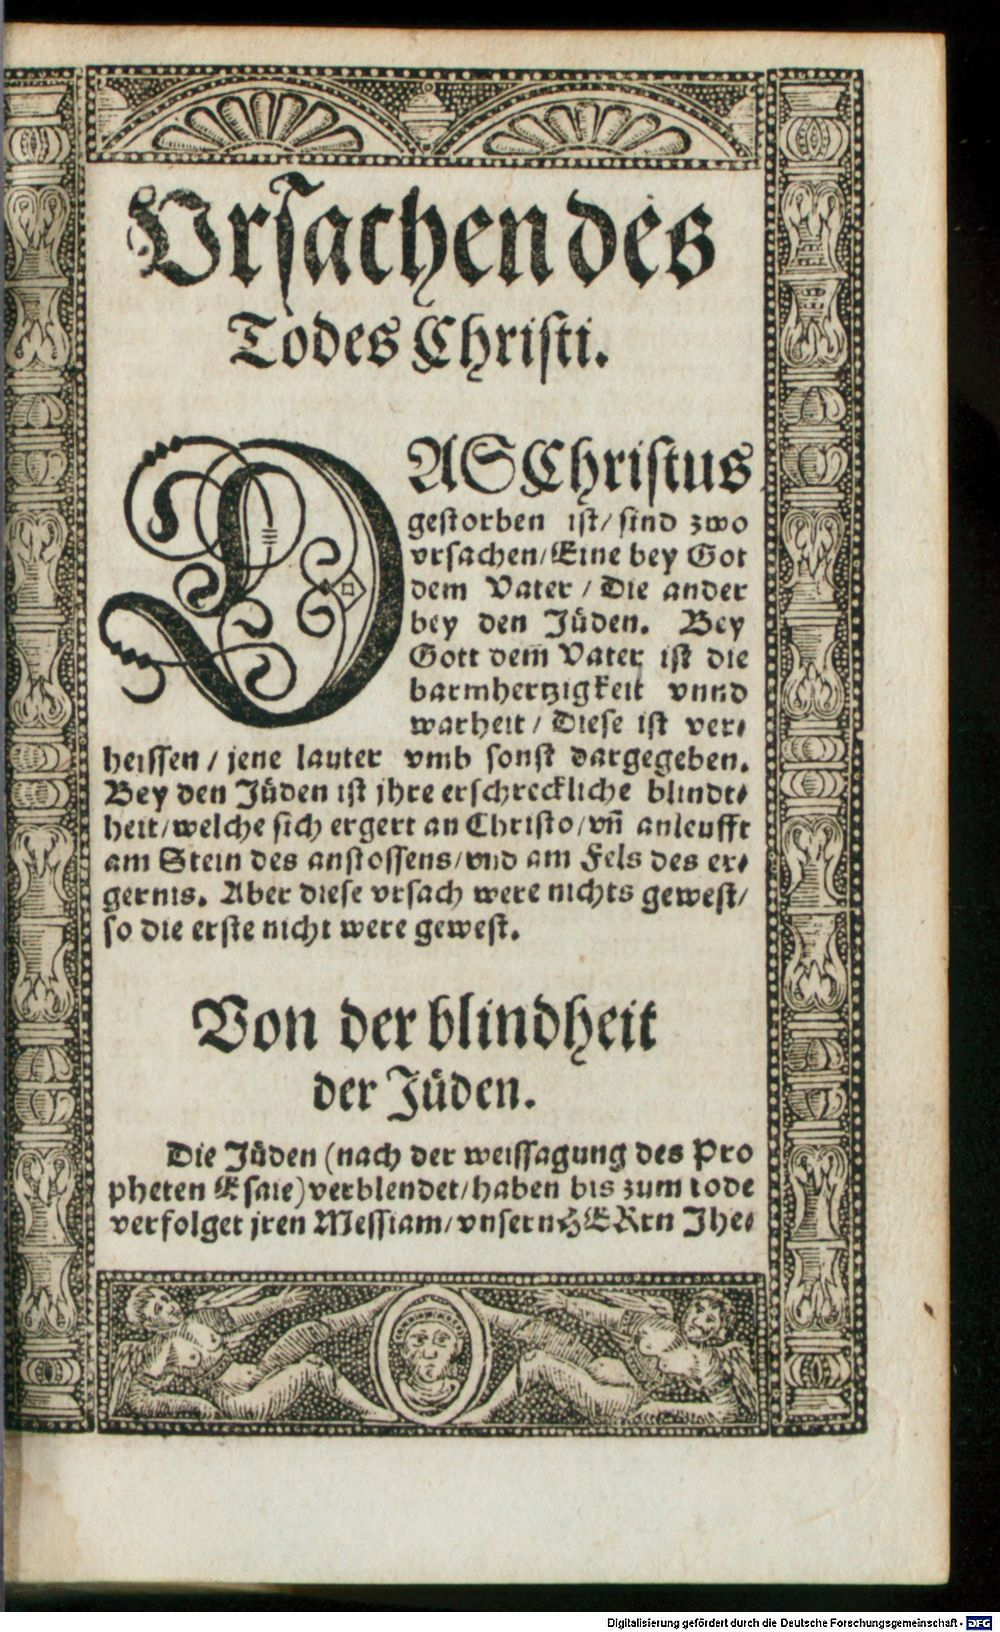 Vrsachen des
Todes Christi.
DAS Christus
gestorben ist/ sind zwo
vrsachen/ Eine bey Got
dem Vater / Die ander
bey den Jüden. Bey
Gott dem Vater ist die
barmhertzigkeit vnnd
warheit / Diese ist ver⸗
heissen / jene lauter vmb sonst dargegeben.
Bey den Jüden ist jhre erschreckliche blindt⸗
heit/ welche sich ergert an Christo/ vñ anleufft
am Stein des anstossens/ vnd am Fels des er⸗
gernis. Aber diese vrsach were nichts gewest/
so die erste nicht were gewest.
Von der blindheit
der Jüden.
Die Jüden (nach der weissagung des Pro
pheten Esaie) verblendet/ haben bis zum tode
verfolget jren Messiam/ vnsern HERrn Jhe⸗
Digitalisierung gefördert durch die Deutsche Forschungsgemeinschaft - DFG